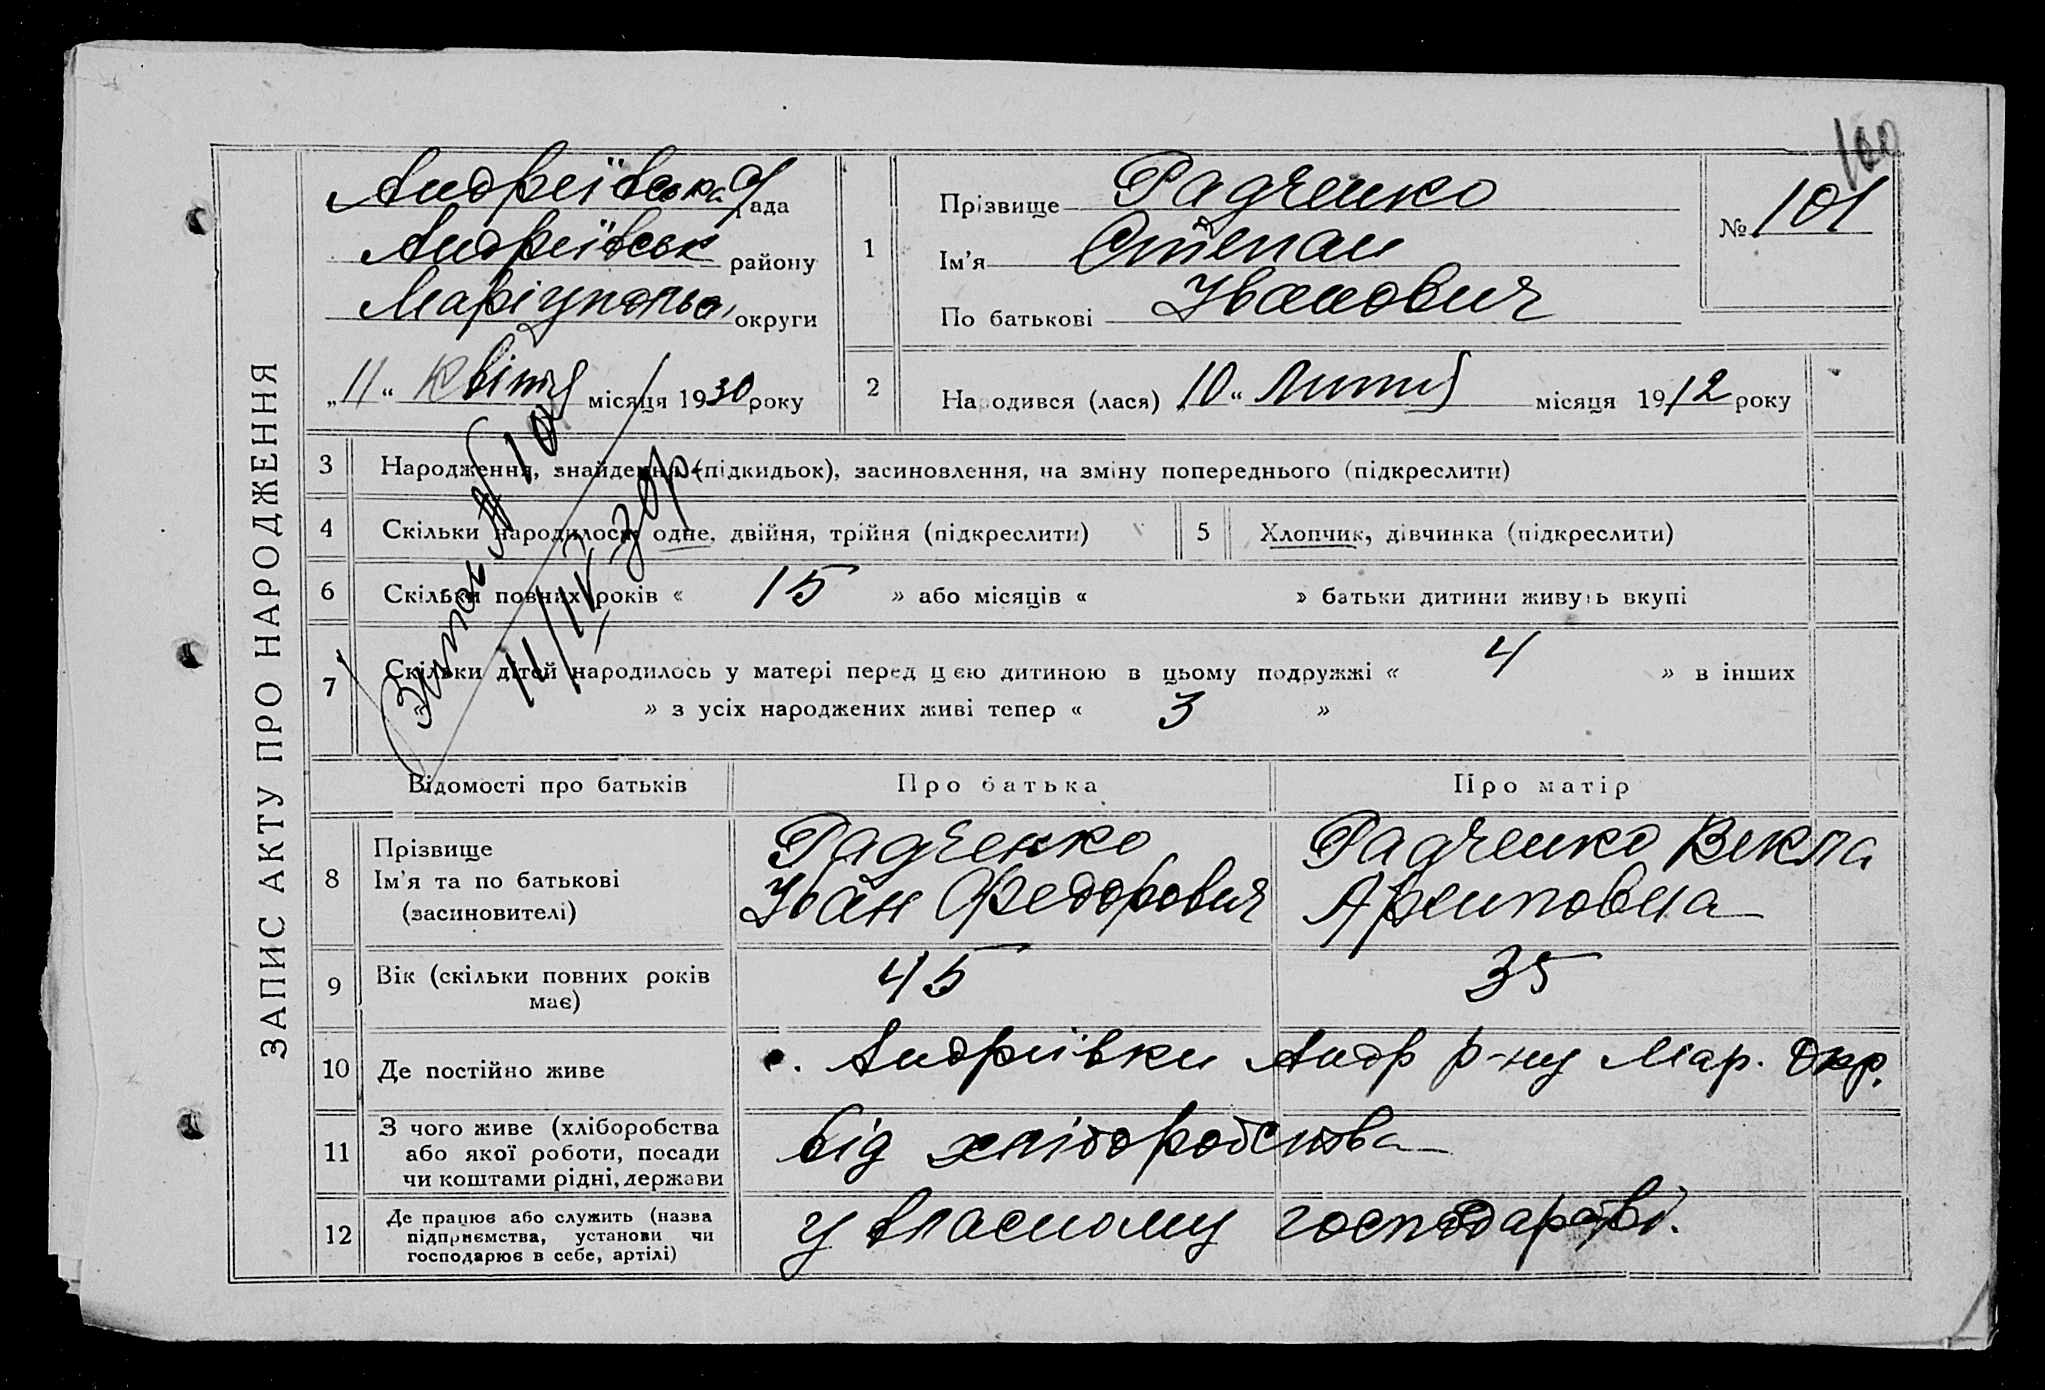 100
ЗАПИС АКТУ ПРО НАРОДЖЕННЯ
Андреївська с/рада
Андреївськ району
Маріупольс, округи
„11“ квітня місяця 1930 року
1
Прізвище Радченко
Ім'я Степан
По батькові Іванович
№ 101
2
Народився (лася) „10“ липня місяця 1912 року
3 Народження, знайдення (підкидьок), засиновлення, на зміну попереднього (підкреслити)
4 Скільки народилося: одне, двійня, трійня (підкреслити)
5 Хлопчик, дівчинка (підкреслити)
6 Скільки повних років « 15 » або місяців « » батьки дитини живуть вкупі
7 Скільки дітей народилось у матері перед цією дитиною в цьому подружжі « 4 » в інших
« » з усіх народжених живі тепер « 3 »
Витяг № 101
11/IV 30р
Відомості про батьків
Про батька
Про матір
8 Прізвище
Ім'я та по батькові
(засиновителі)
Радченко
Іван Федорович
Радченко Векла
Архиповна
9 Вік (скільки повних років
має)
45
35
10 Де постійно живе
с. Андріївки Андр р-ну Мар. Окр.
11 З чого живе (хліборобства
або якої роботи, посади
чи коштами рідні, держави
від хліборобства
12 Де працює або служить (назва
підприємства, установи чи
господарює в себе, артілі)
у власному господарстві.